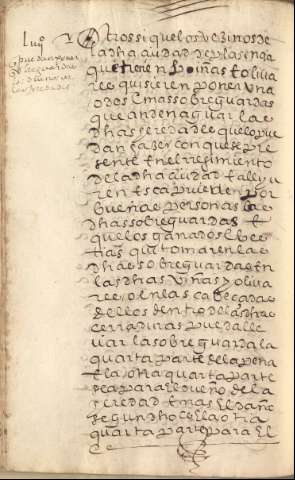 Otrossi que los vezinos de
la dha ciudad de plasençia
que tienen biñas E oliua
res quisieren poner vna
o dos E mas sobreguardas
que anden a guardar las
dhas eredades que lo pue
dan fazer con que se pre
sente En el rregimiento
de la dha ciudad E alli ju
ren E se aprueuen por
buenas personas las
dhas sobreguardas E
que los ganados E bes
tias que tomaren las
dhas sobreguardas En
las dhas Viñas y oliua
res o En las cabeçadas
dellos dentro de las dhas
cerraduras pueda lle
uar la sobreguarda la
quarta parte de la pena
E la otra quarta parte
sea para el dueño de la
eredad E mas El daño
segund dho es E la otra
quarta parte para El
que puedan poner
sobreguardas